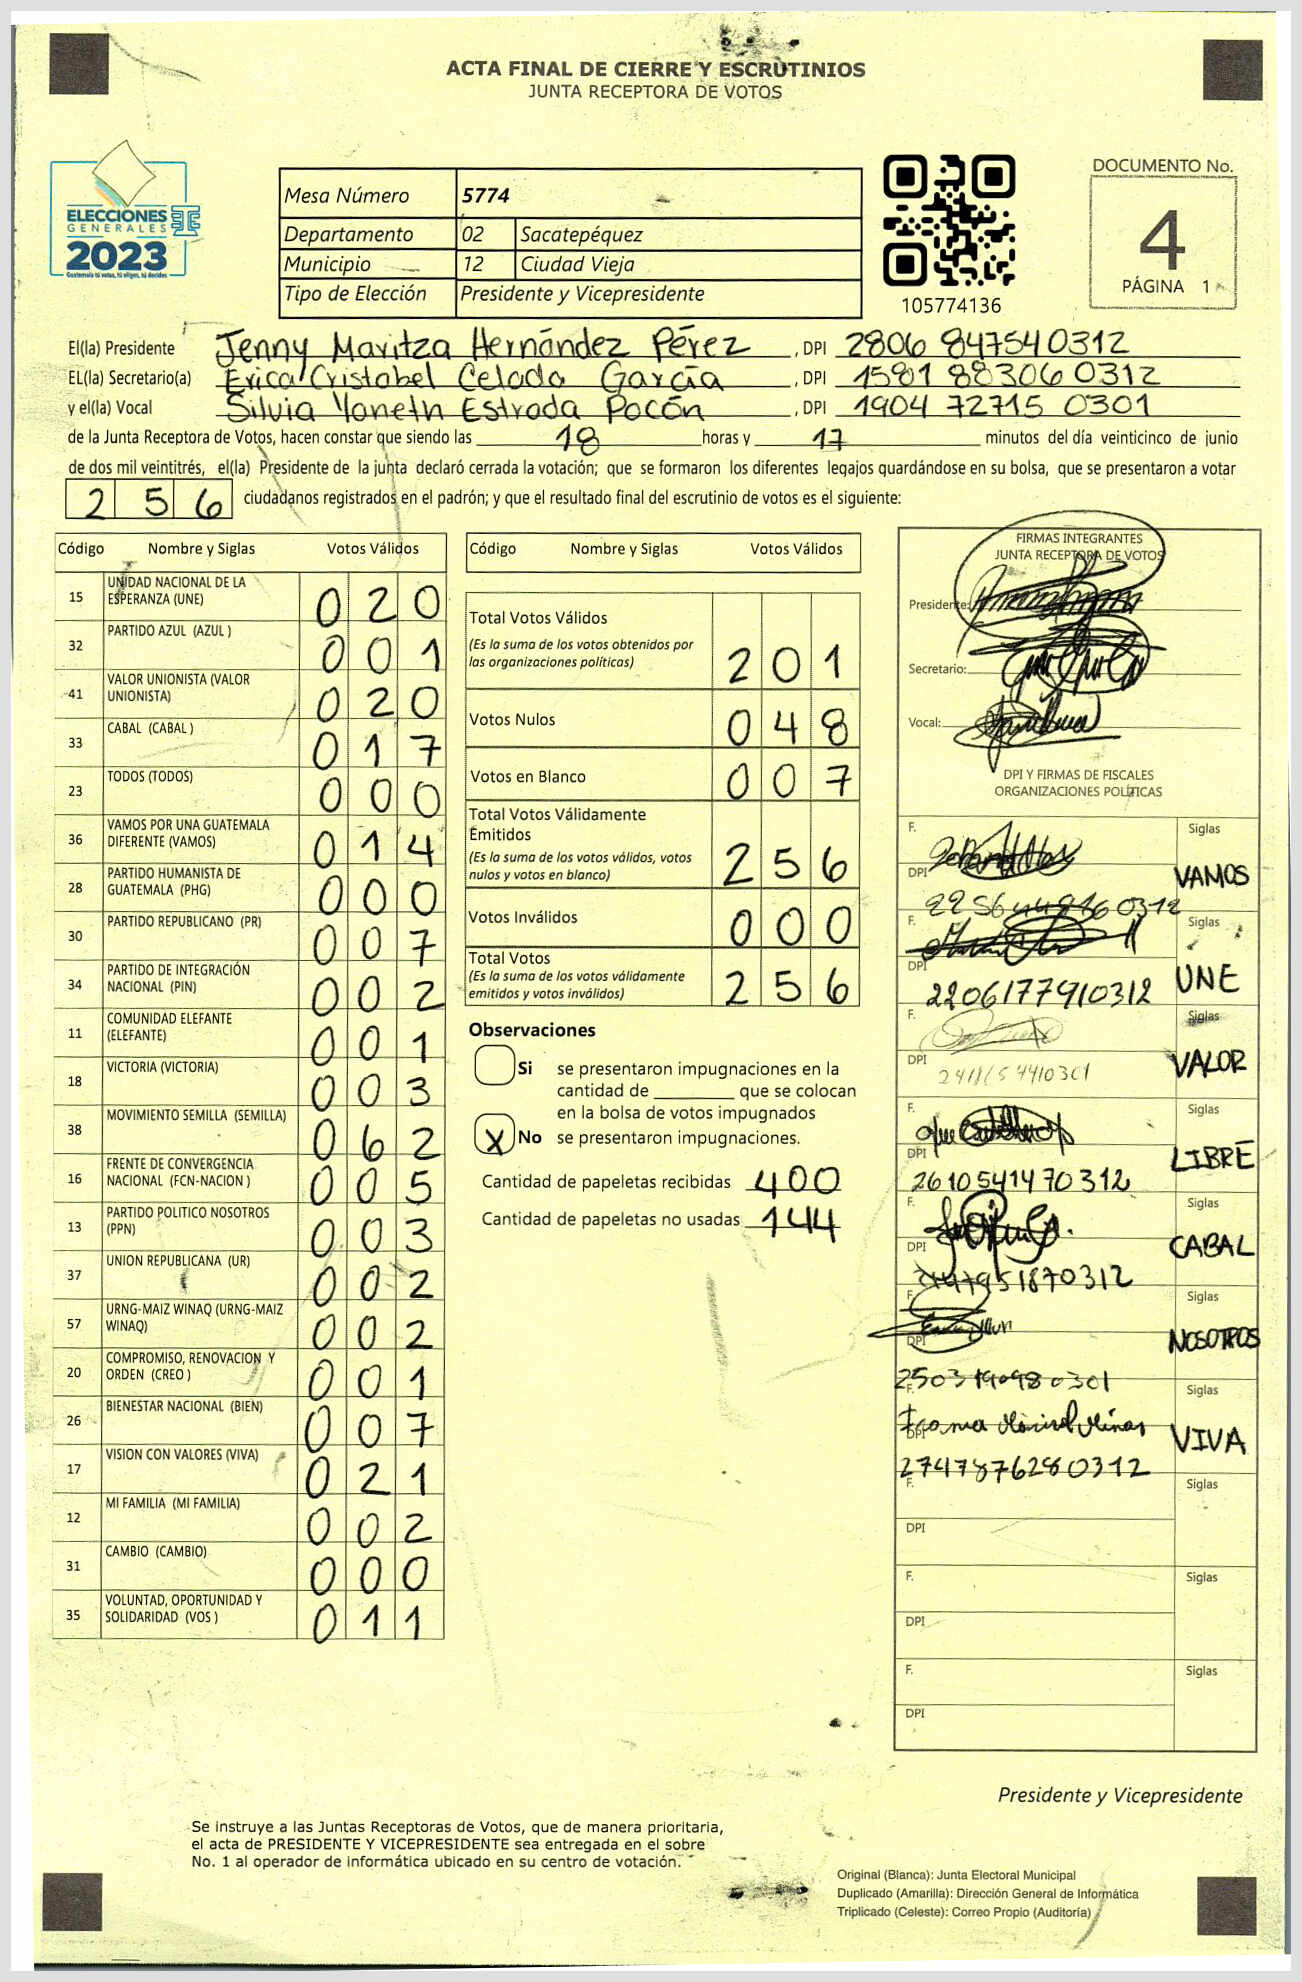 ACTA FINAL DE CIERRE Y ESCRUTINIOS
JUNTA RECEPTORA DE VOTOS
ELECCIONES
GENERALES
2023
Guatemala tú votas, tú eliges, tú decides
Mesa Número 5774
Departamento 02 Sacatepéquez
Municipio 12 Ciudad Vieja
Tipo de Elección Presidente y Vicepresidente
105774136
DOCUMENTO No.
4
PÁGINA 1
El(la) Presidente Jenny Maritza Hernández Pérez , DPI 2806 84754 0312
EL(la) Secretario(a) Erica Cristabel Celada García , DPI 1581 88306 0312
y el(la) Vocal Silvia Yaneth Estrada Pocón , DPI 1904 72715 0301
de la Junta Receptora de Votos, hacen constar que siendo las 18 horas y 17 minutos del día veinticinco de junio
de dos mil veintitrés, el(la) Presidente de la junta declaró cerrada la votación; que se formaron los diferentes legajos guardándose en su bolsa, que se presentaron a votar
2 5 6 ciudadanos registrados en el padrón; y que el resultado final del escrutinio de votos es el siguiente:
Código Nombre y Siglas Votos Válidos
15 UNIDAD NACIONAL DE LA ESPERANZA (UNE) 0 2 0
32 PARTIDO AZUL (AZUL ) 0 0 1
41 VALOR UNIONISTA (VALOR UNIONISTA) 0 2 0
33 CABAL (CABAL ) 0 1 7
23 TODOS (TODOS) 0 0 0
36 VAMOS POR UNA GUATEMALA DIFERENTE (VAMOS) 0 1 4
28 PARTIDO HUMANISTA DE GUATEMALA (PHG) 0 0 0
30 PARTIDO REPUBLICANO (PR) 0 0 7
34 PARTIDO DE INTEGRACIÓN NACIONAL (PIN) 0 0 2
11 COMUNIDAD ELEFANTE (ELEFANTE) 0 0 1
18 VICTORIA (VICTORIA) 0 0 3
38 MOVIMIENTO SEMILLA (SEMILLA) 0 6 2
16 FRENTE DE CONVERGENCIA NACIONAL (FCN-NACION ) 0 0 5
13 PARTIDO POLITICO NOSOTROS (PPN) 0 0 3
37 UNION REPUBLICANA (UR) 0 0 2
57 URNG-MAIZ WINAQ (URNG-MAIZ WINAQ) 0 0 2
20 COMPROMISO, RENOVACION Y ORDEN (CREO ) 0 0 1
26 BIENESTAR NACIONAL (BIEN) 0 0 7
17 VISION CON VALORES (VIVA) 0 2 1
12 MI FAMILIA (MI FAMILIA) 0 0 2
31 CAMBIO (CAMBIO) 0 0 0
35 VOLUNTAD, OPORTUNIDAD Y SOLIDARIDAD (VOS ) 0 1 1
Código Nombre y Siglas Votos Válidos
Total Votos Válidos 2 0 1
(Es la suma de los votos obtenidos por
las organizaciones políticas)
Votos Nulos 0 4 8
Votos en Blanco 0 0 7
Total Votos Válidamente
Emitidos 2 5 6
(Es la suma de los votos válidos, votos
nulos y votos en blanco)
Votos Inválidos 0 0 0
Total Votos 2 5 6
(Es la suma de los votos válidamente
emitidos y votos inválidos)
Observaciones
Si se presentaron impugnaciones en la
cantidad de ________ que se colocan
en la bolsa de votos impugnados
X No se presentaron impugnaciones.
Cantidad de papeletas recibidas 400
Cantidad de papeletas no usadas 144
FIRMAS INTEGRANTES
JUNTA RECEPTORA DE VOTOS
Presidente:
Secretario:
Vocal:
DPI Y FIRMAS DE FISCALES
ORGANIZACIONES POLÍTICAS
F. Siglas
DPI VAMOS
F. Siglas
DPI 2206177910312 UNE
F. Siglas
DPI VALOR
F. Siglas
DPI 2610541470312 LIBRE
F. Siglas
DPI CABAL
F. Siglas
DPI NOSOTROS
2503190980301
F. Siglas
DPI VIVA
2747876280312
F. Siglas
DPI
F. Siglas
DPI
F. Siglas
DPI
Presidente y Vicepresidente
Se instruye a las Juntas Receptoras de Votos, que de manera prioritaria,
el acta de PRESIDENTE Y VICEPRESIDENTE sea entregada en el sobre
No. 1 al operador de informática ubicado en su centro de votación.
Original (Blanca): Junta Electoral Municipal
Duplicado (Amarilla): Dirección General de Informática
Triplicado (Celeste): Correo Propio (Auditoría)